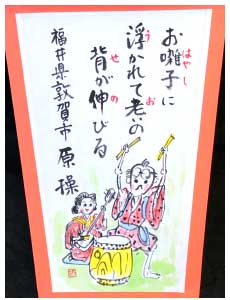 お囃子に
浮かれて老いの
背が伸びる
福井県敦賀市 原 操
はやし
う
お
せ
の